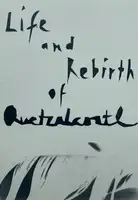 Life
and
Rebirth
of
Quetzalcoatl